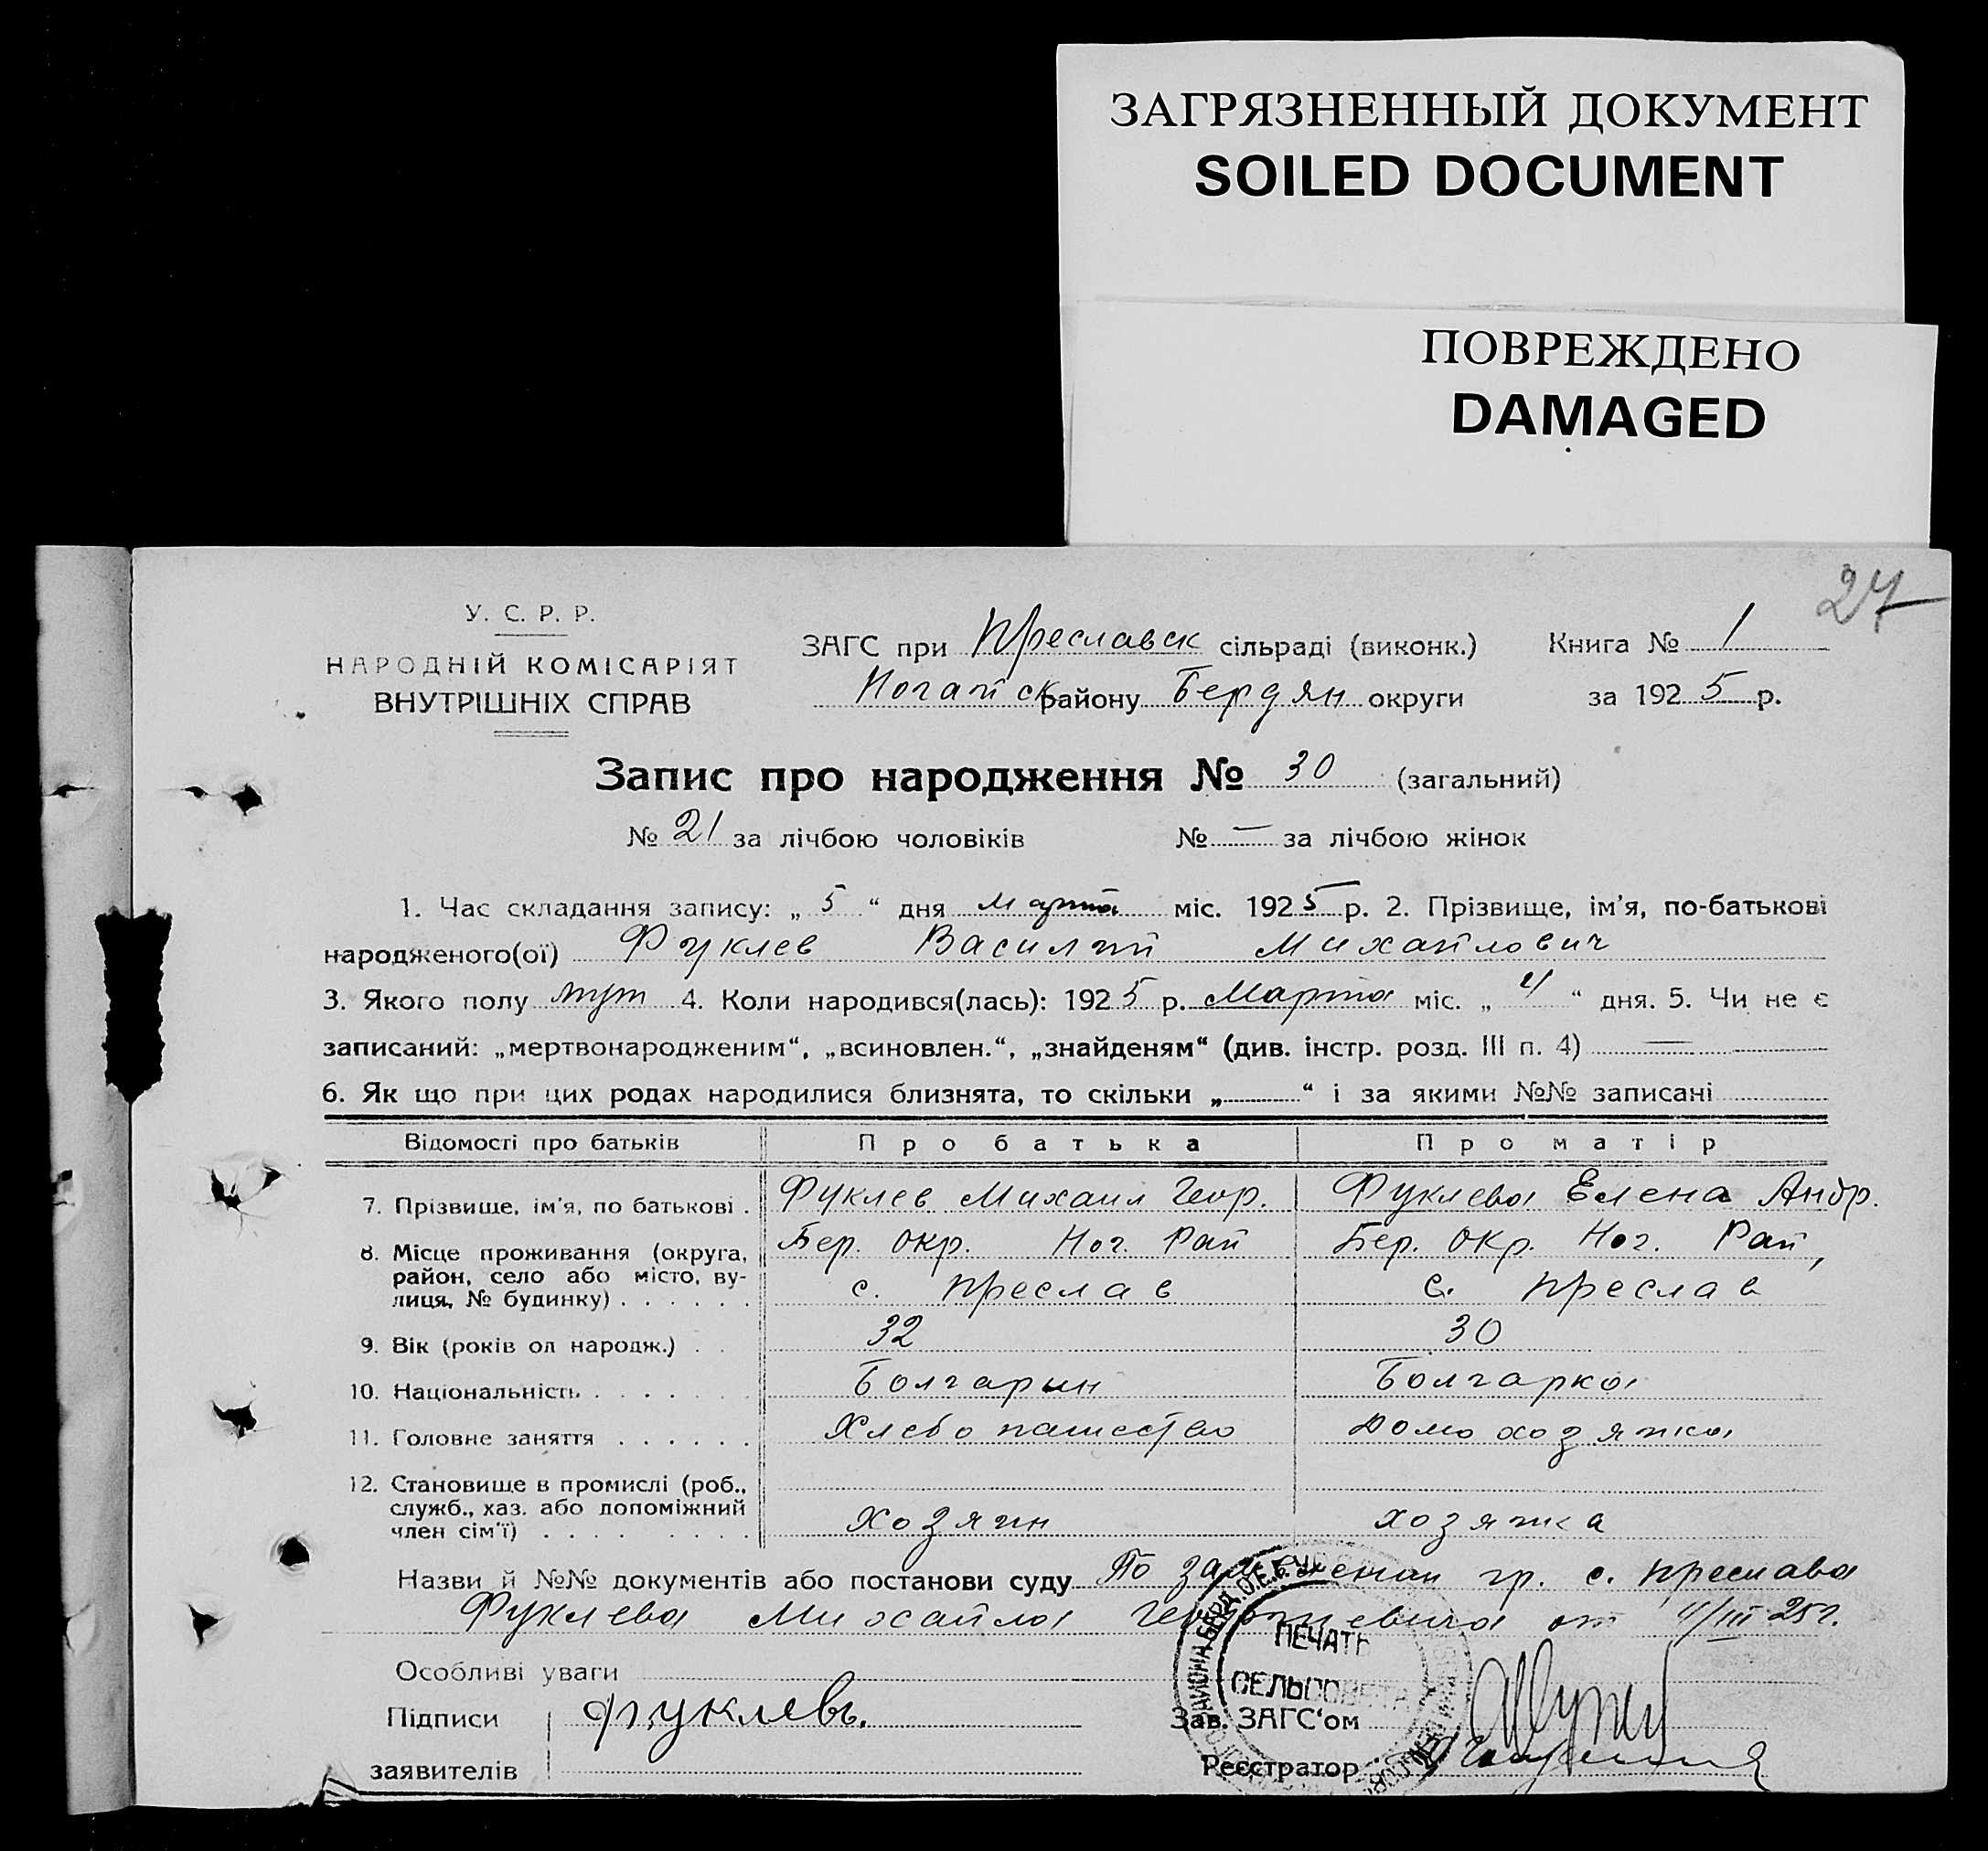 ЗАГРЯЗНЕННЫЙ ДОКУМЕНТ
SOILED DOCUMENT
ПОВРЕЖДЕНО
DAMAGED
24
У. С. Р. Р.
НАРОДНІЙ КОМІСАРІЯТ
ВНУТРІШНІХ СПРАВ
ЗАГС при Преславск сільраді (виконк.) Книга № 1
Ногайск району Бердян округи за 1925 р.
Запис про народження № 30 (загальний)
№ 21 за лічбою чоловіків № — за лічбою жінок
1. Час складання запису: „ 5 “ дня Марта міс. 1925 р. 2. Прізвище, ім'я, по-батькові
народженого(ої) Фуклев Василий Михайлович
3. Якого полу муж 4. Коли народився(лась): 1925 р. Марта міс. „ 4 “ дня. 5. Чи не є
записаний: „мертвонародженим“, „всиновлен.“, „знайденям“ (див. інстр. розд. III п. 4) —
6. Як що при цих родах народилися близнята, то скільки „ “ і за якими №№ записані
Відомості про батьків Про батька Про матір
7. Прізвище, ім'я, по батькові . Фуклев Михаил Геор. Фуклева Елена Андр.
8. Місце проживання (округа, район, село або місто, вулиця, № будинку) . . . . . .
Бер. Окр. Ног. Рай Бер. Окр. Ног. Рай,
с. Преслав с. Преслав
9. Вік (років од народж.) . . 32 30
10. Національність . . . . . . . Болгарин Болгарка
11. Головне заняття . . . . . . Хлебопашество Домохозяйка
12. Становище в промислі (роб., служб., хаз. або допоміжний член сім'ї) . . . . . . . .
хозяин хозяйка
Назви й №№ документів або постанови суду По гр. с. Преслава
Фуклева Михайла Георгиевича от 4/III 25 г.
Особливі уваги
Підписи Фуклевъ.
заявителів
ПЕЧАТЬ
СЕЛЬСОВЕТА
Зав. ЗАГС'ом
Реєстратор